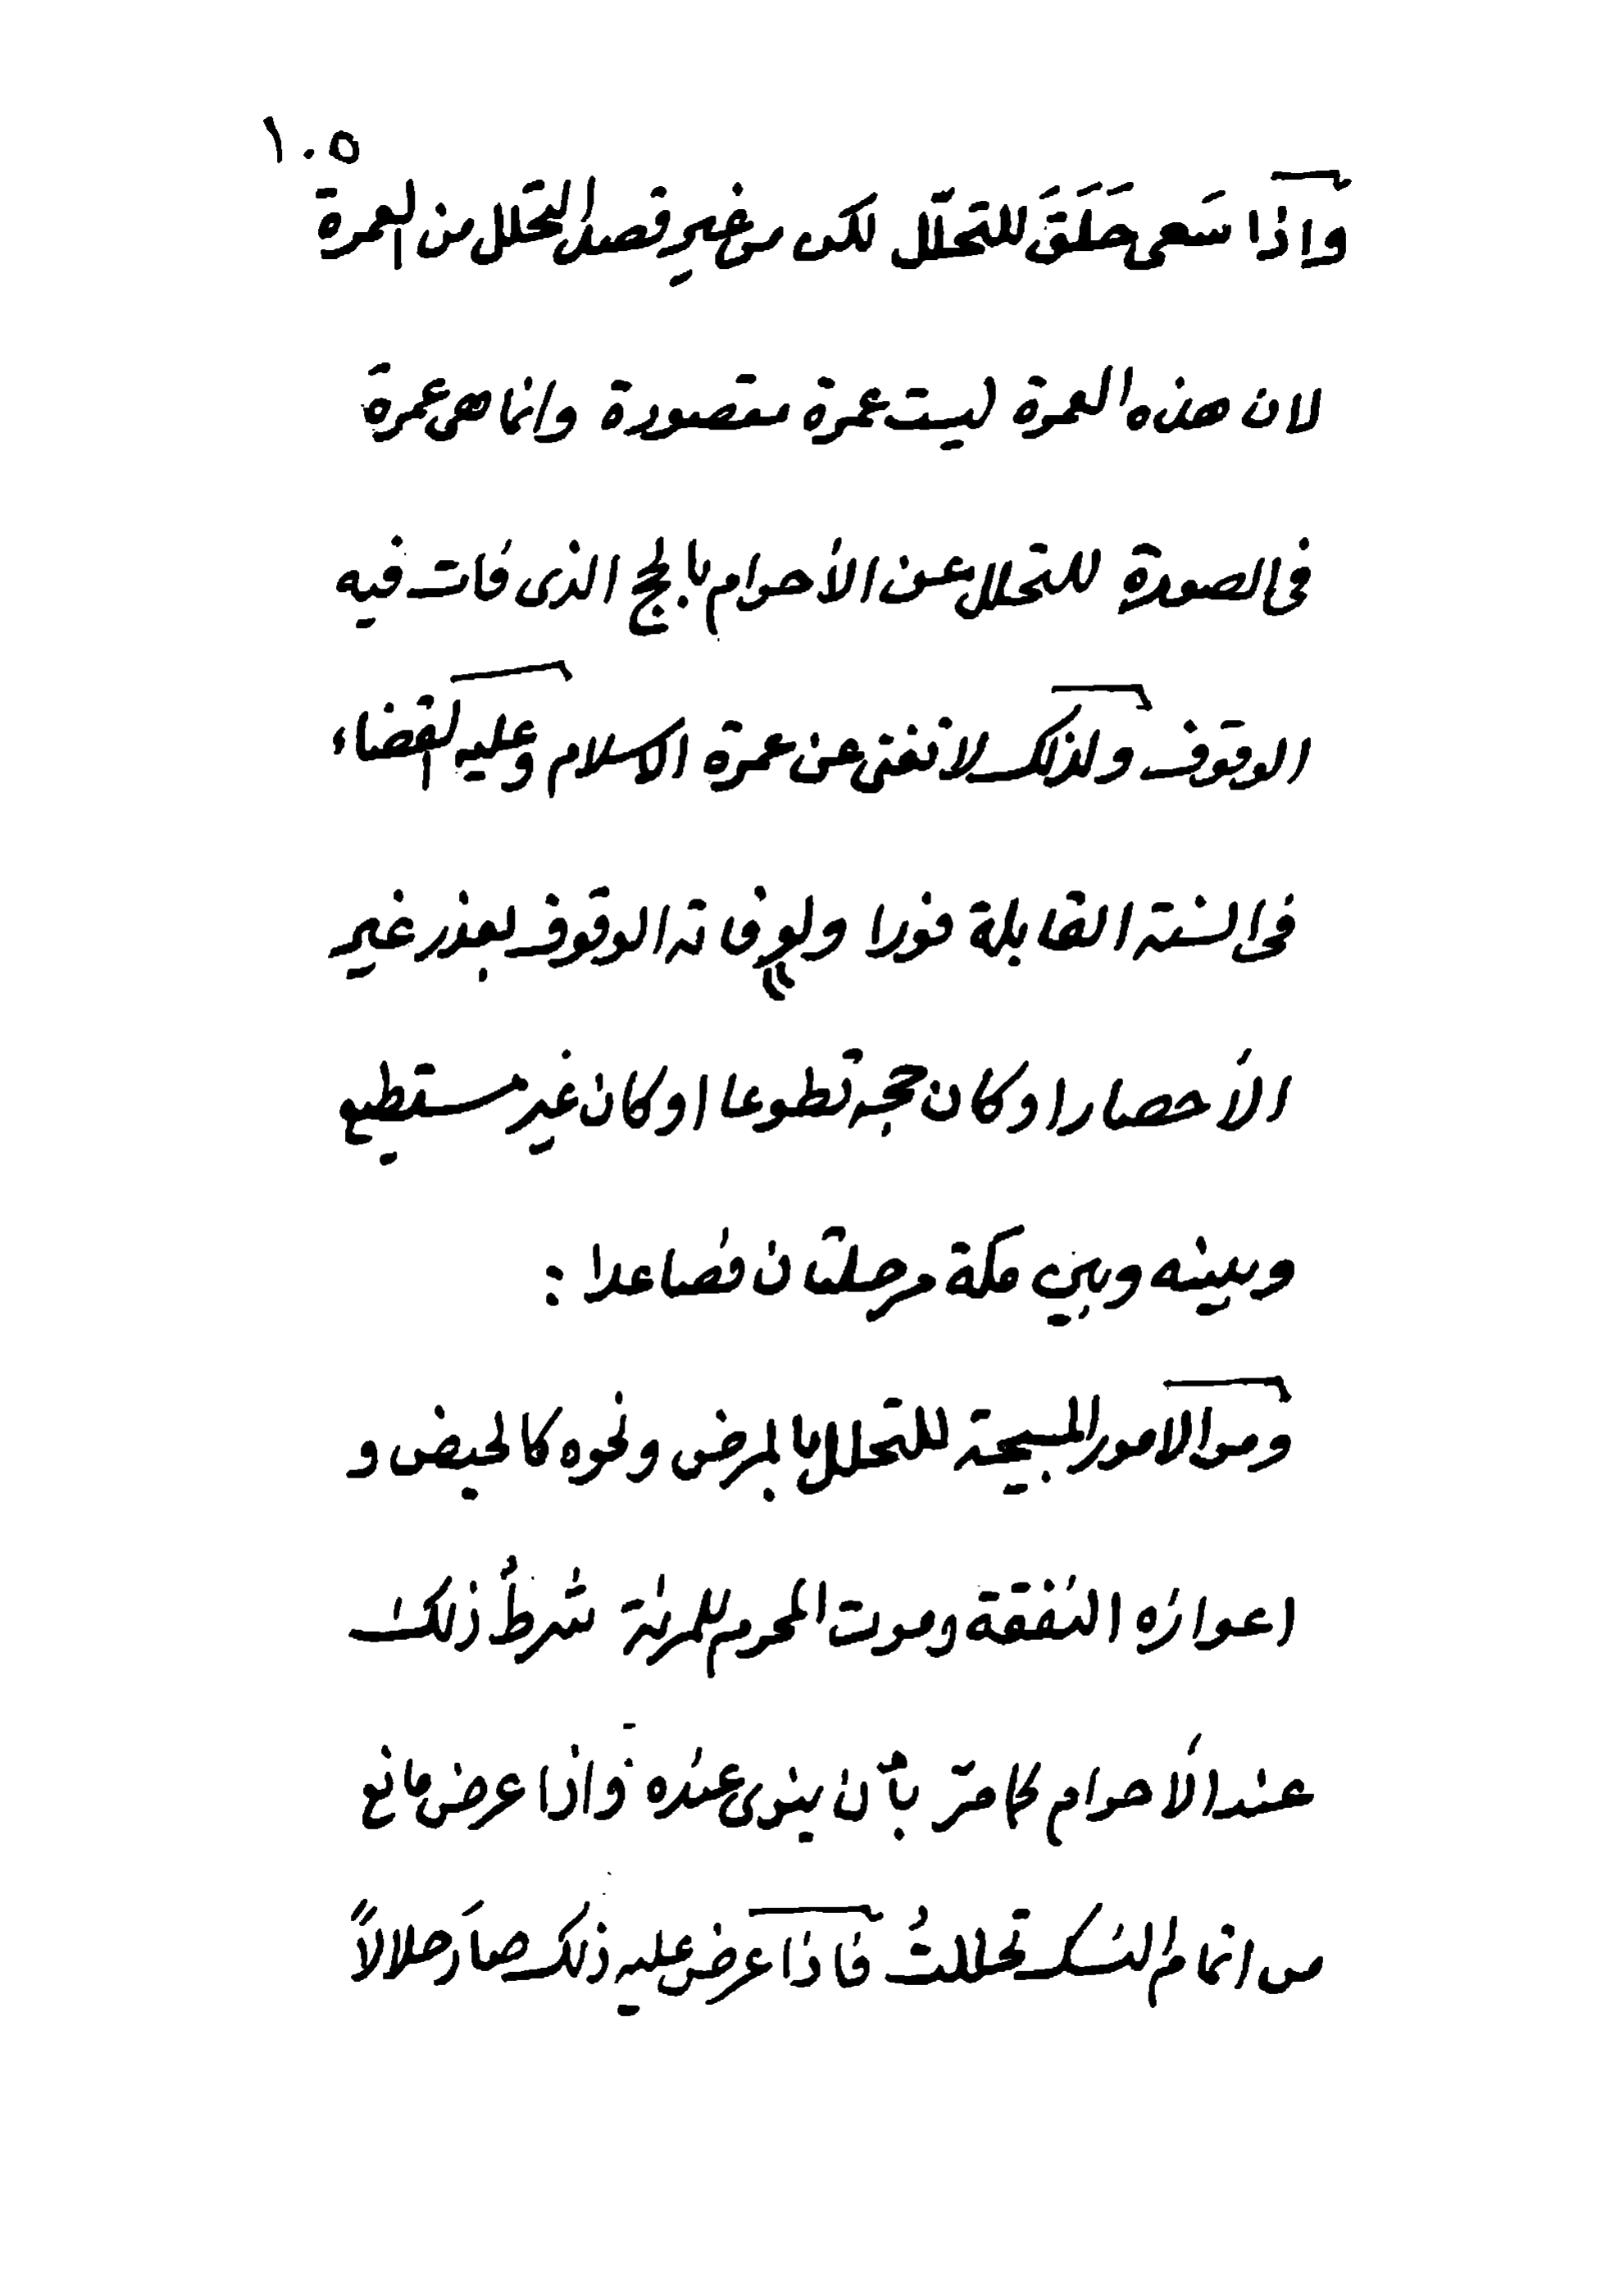 ١٠٥
واذا سَعى حَلَقَ للتحلّل لكن من غير قصد التحلل من العمرة
لان هذه العمرة ليست عمرة مقصودة وانما هى عمرة
فى الصورة للتحلل عن الأحرام بالحج الذى فات فيه
الوقوف ولذلك لا تغنى عن عمرة الاسلام وعليه القضاء
فى السنة القابلة فورا ولو فاته الوقوف بعذر غير
الأحصار او كان حجه تطوعا او كان غير مستطيع
وبينه وبين مكة مرحلتان فصاعدا :
ومن الامور المبيحة للتحلل بالمرض ونحوه كالحيض و
اعوازه النفقة وموت المحرم للمرئة شرطُ ذلك
عند الأحرام كما مرّ بأن ينوى عنده واذا عرض مانع
من اتمام النسك تحللتُ فاذا عرض عليه ذلك صار حلالاً